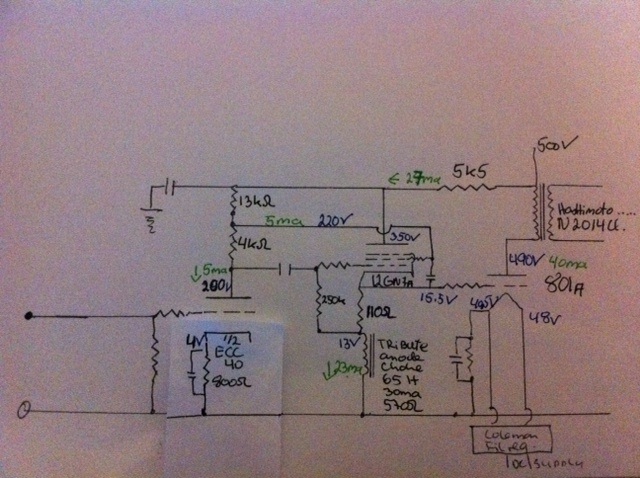 500V
← 27ma 5k5
13kΩ
Hashimoto .....
5ma 220V
350V
4kΩ
490V 40ma
↓5ma
200V
12GN7A
801A
15.5V
250k
110Ω
48V
4V 1/2
ECC
40
800Ω
13V
↓23ma
TRibute
anode
choke
65 H
30ma
570Ω
Coleman
Fil reg.
DC supply